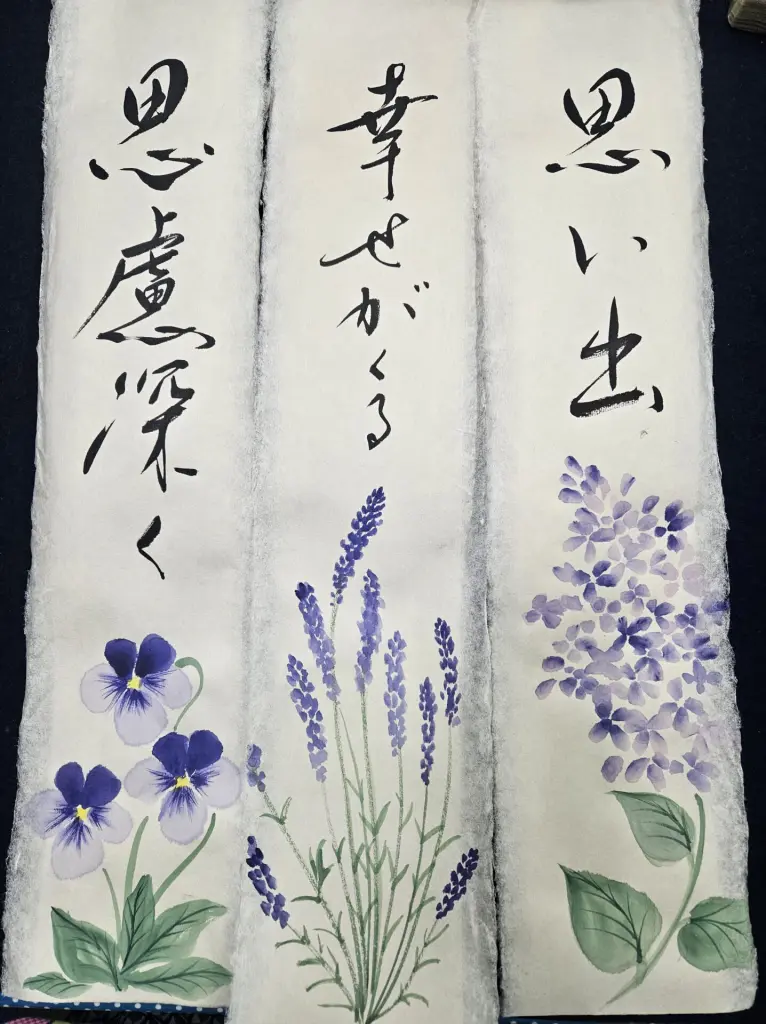 思い出
幸せがくる
思慮深く